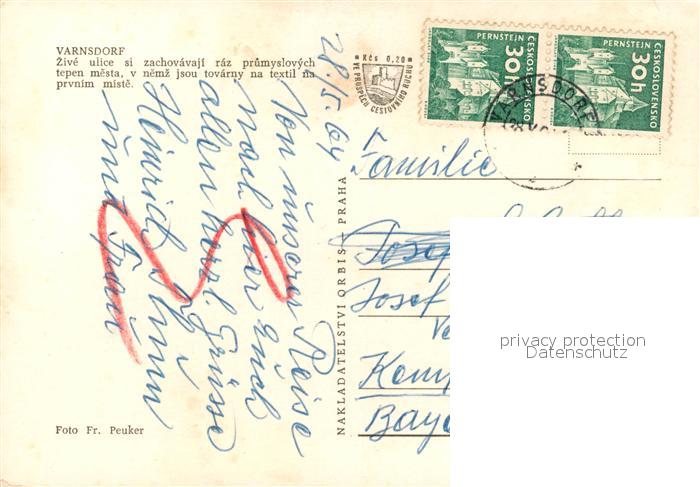 VARNSDORF
Živé ulice si zachovávají ráz průmyslových
tepen města, v němž jsou továrny na textil na
prvním místě.
Foto Fr. Peuker
28. 5. 64
Von unserer Reise
nach hier Euch
allen herzl. Grüsse
Heinrich
und Frau
NAKLADATELSTVÍ ORBIS – PRAHA
Kčs 0,20
VE PROSPĚCH CESTOVNÍHO RUCHU
PERNŠTEJN
30h
ČESKOSLOVENSKO
PERNŠTEJN
30h
ČESKOSLOVENSKO
VARNSDORF
Familie
Josef
Josef
Kemp
Baye
privacy protection
Datenschutz